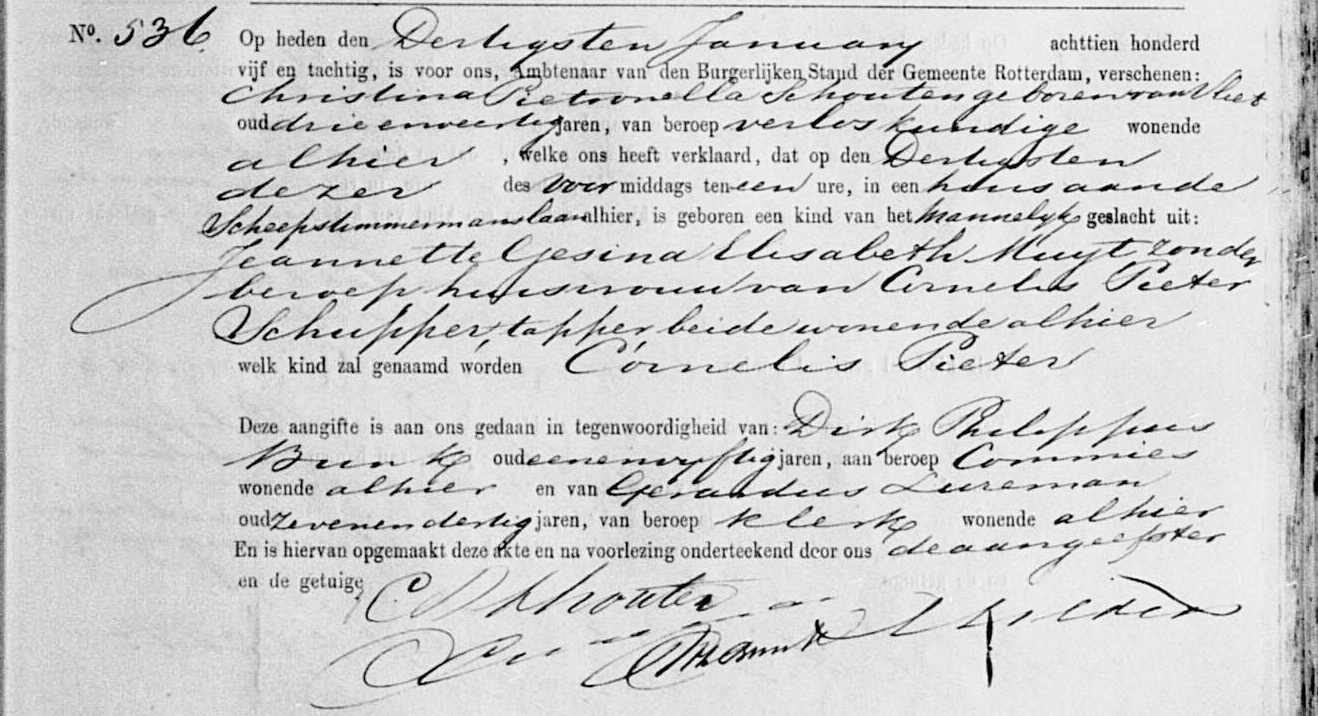 No. 536. Op heden den Dertigsten January achttien honderd
vijf en tachtig, is voor ons, Ambtenaar van den Burgerlijken Stand der Gemeente Rotterdam, verschenen:
Christina Pietronella Schouten geboren van Vliet
oud drieenveertig jaren, van beroep verloskundige wonende
alhier, welke ons heeft verklaard, dat op den Dertigsten
dezer des voor middags ten een ure, in een huis aan de
Scheepstimmermanslaan alhier, is geboren een kind van het Mannelyk geslacht uit:
Jeannette Gesina Elisabeth Muyt zonder
beroep huisvrouw van Cornelis Pieter
Schupper, tapper beide wonende alhier
welk kind zal genaamd worden Cornelis Pieter
Deze aangifte is aan ons gedaan in tegenwoordigheid van: Dirk Philippus
Bunk oud eenenvyftig jaren, aan beroep Commies
wonende alhier en van Gerardus Lureman
oud zevenendertig jaren, van beroep klerk wonende alhier
En is hiervan opgemaakt deze akte en na voorlezing onderteekend door ons de aangeefster
en de getuige
C P Schouten